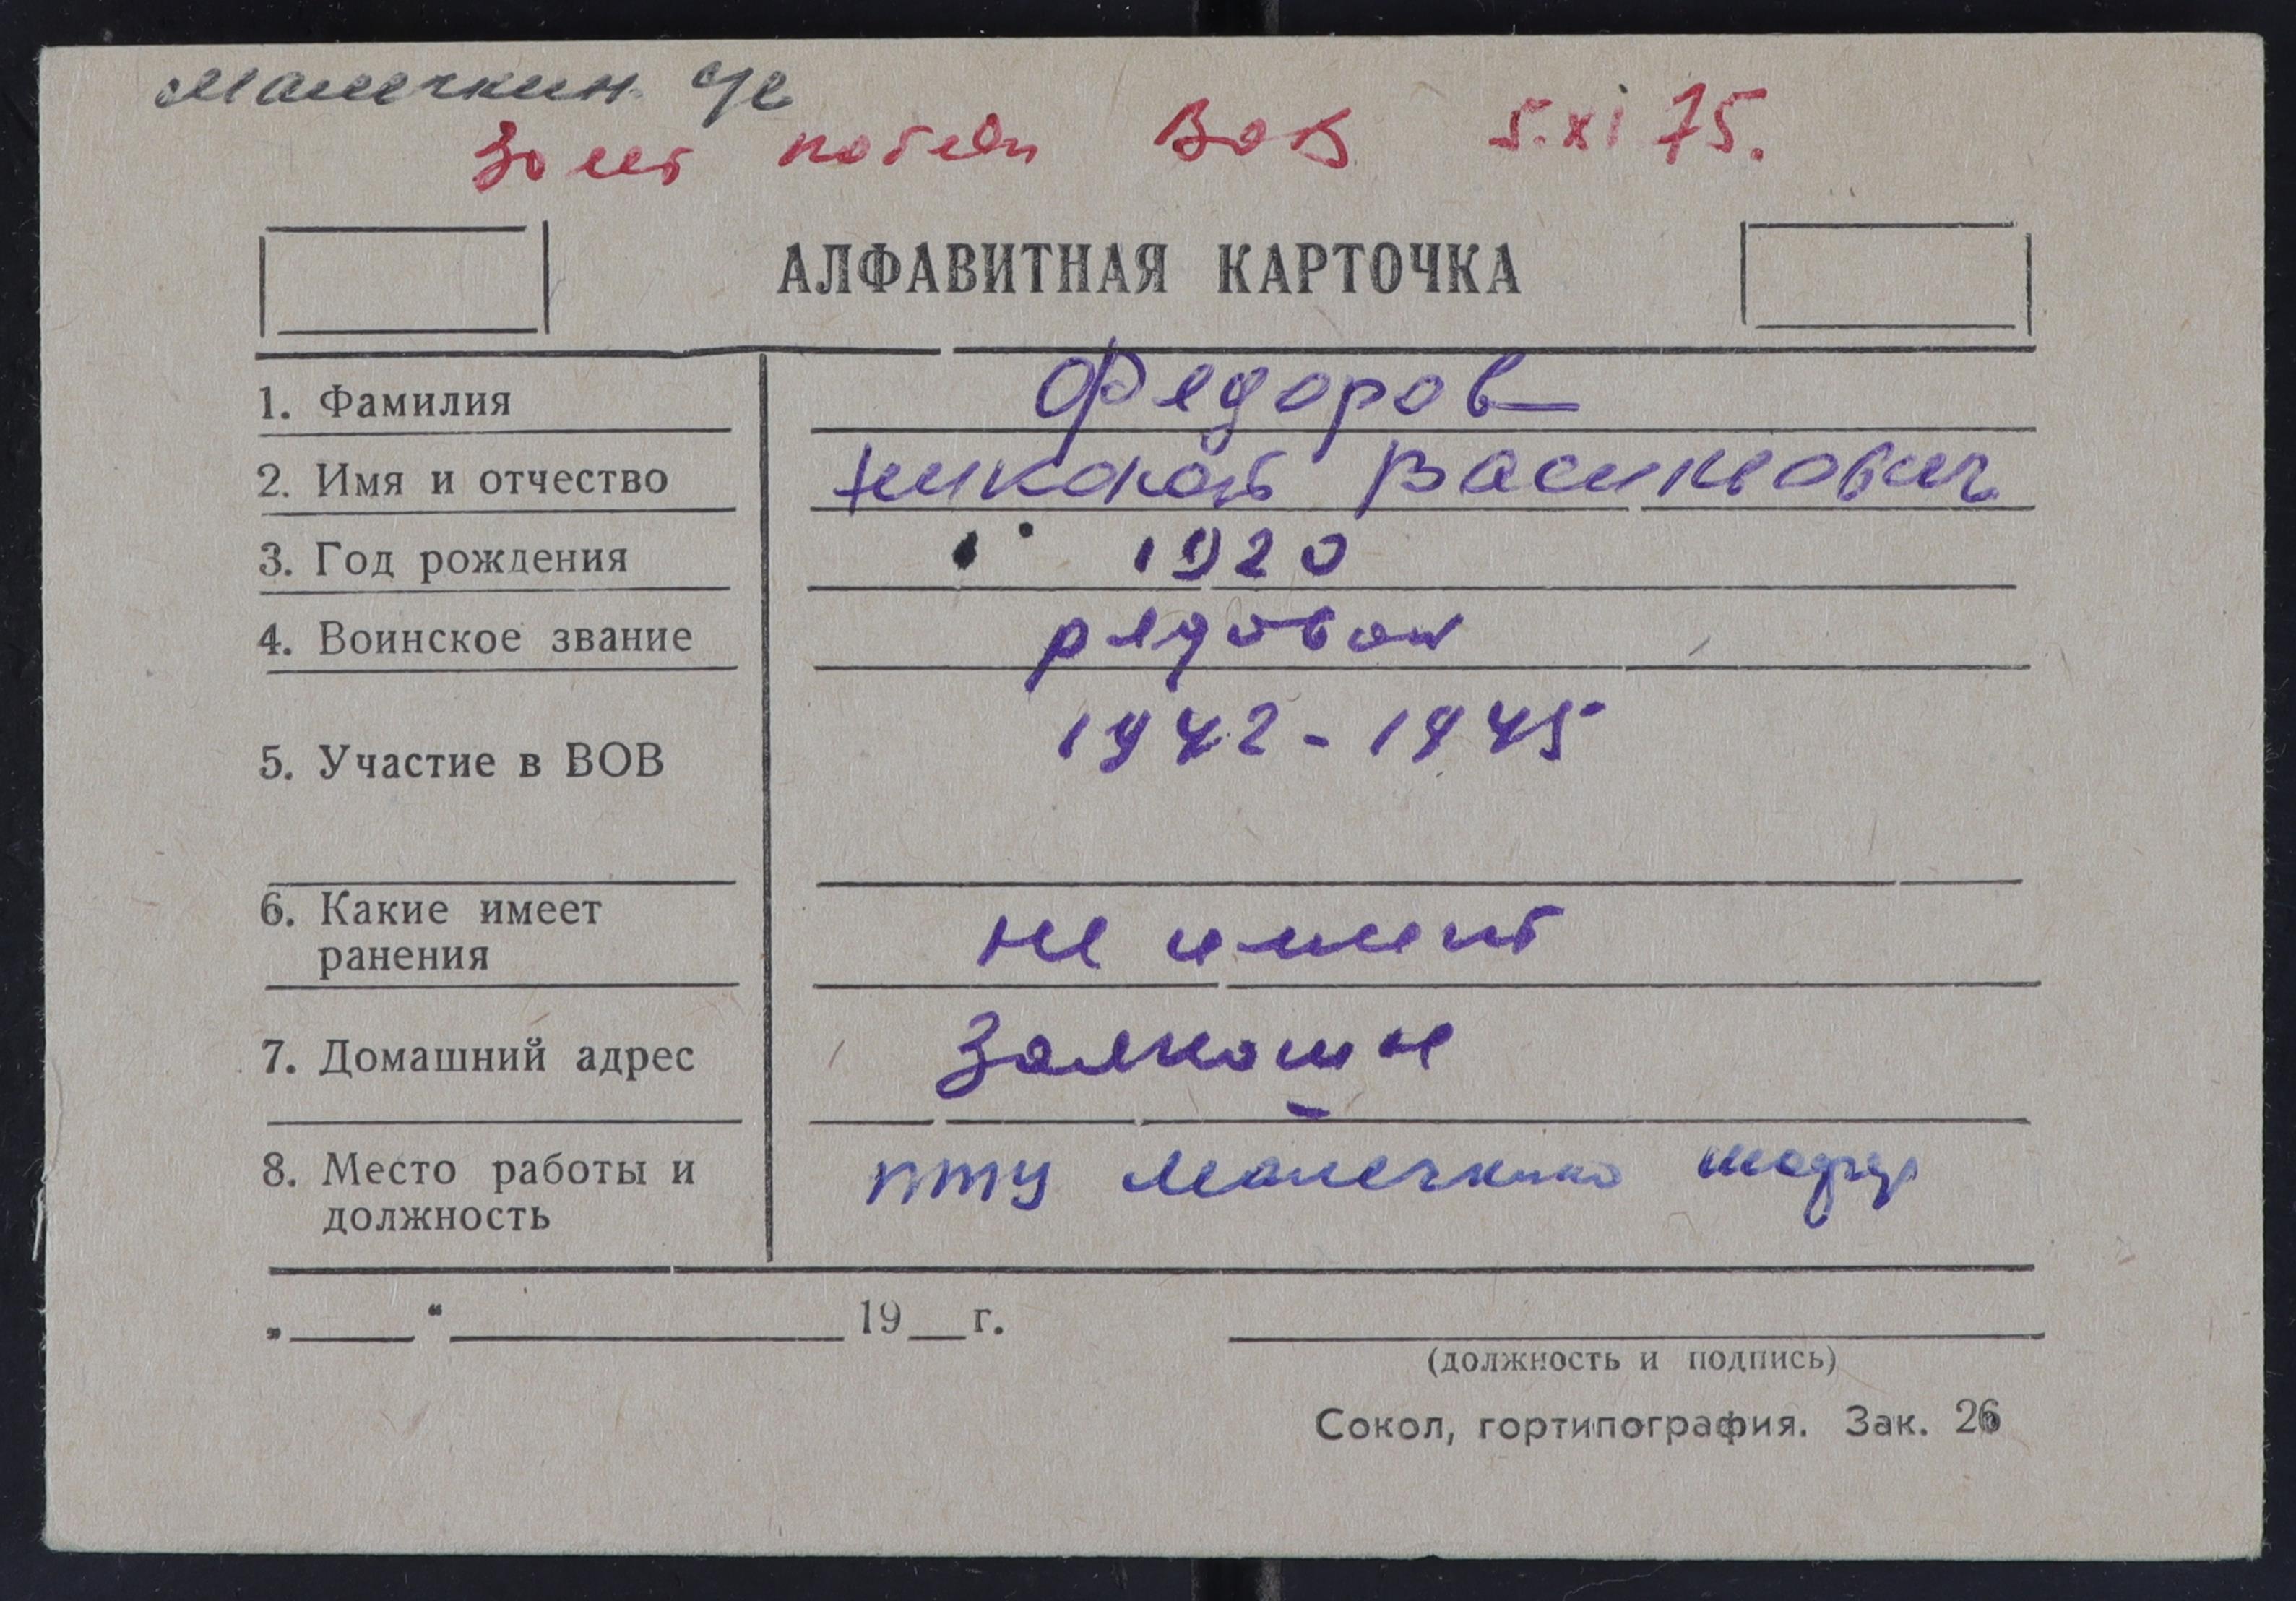 Малечкин. с/с
30 лет победы ВОВ 5.XI 75.
АЛФАВИТНАЯ КАРТОЧКА
1. Фамилия Федоров
2. Имя и отчество Николай Васильевич
3. Год рождения 1920
4. Воинское звание рядовой
5. Участие в ВОВ 1942-1945
6. Какие имеет ранения не имеет
7. Домашний адрес
8. Место работы и должность ПТУ Малечкино
„ “ 19 г.
(должность и подпись)
Сокол, гортипография. Зак. 26